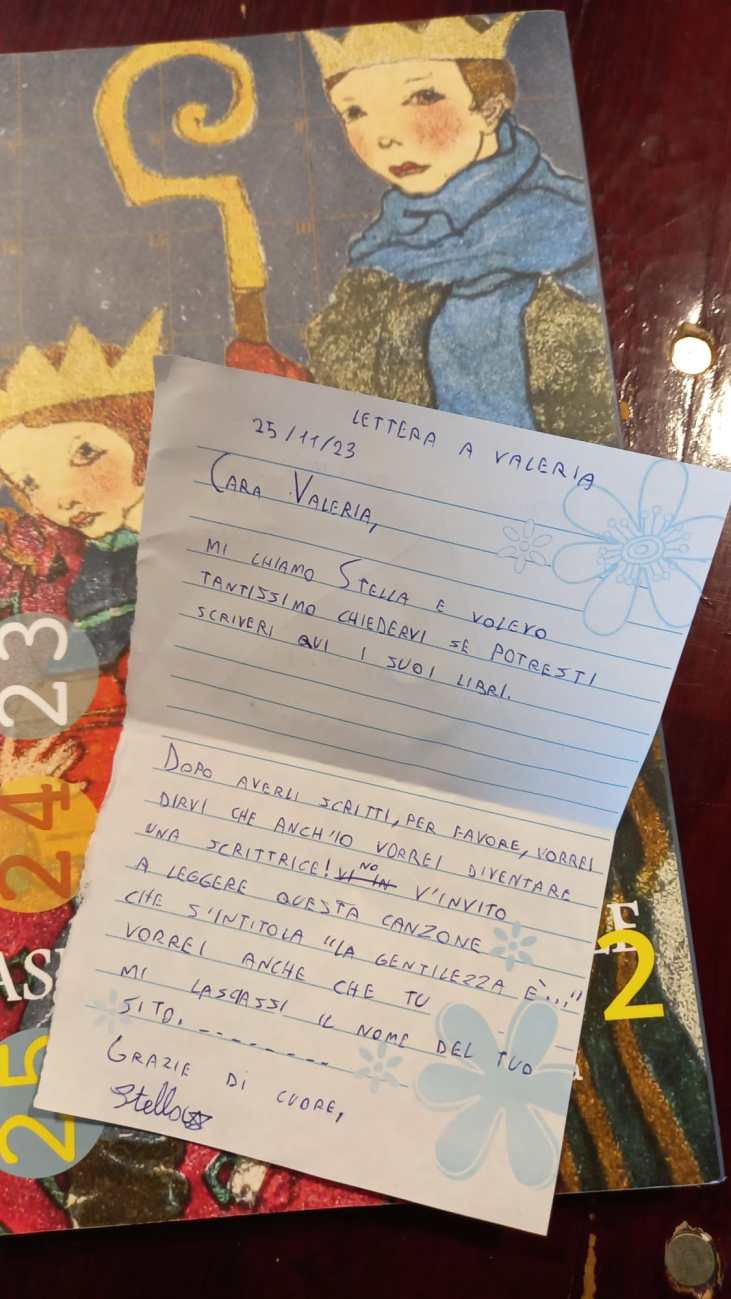 LETTERA A VALERIA
25/11/23
CARA VALERIA,
MI CHIAMO STELLA E VOLEVO
TANTISSIMO CHIEDERVI SE POTRESTI
SCRIVERI QUI I SUOI LIBRI.
DOPO AVERLI SCRITTI, PER FAVORE, VORREI
DIRVI CHE ANCH'IO VORREI DIVENTARE
UNA SCRITTRICE! VI IN NO V'INVITO
A LEGGERE QUESTA CANZONE
CHE S'INTITOLA "LA GENTILEZZA È..."
VORREI ANCHE CHE TU
MI LASCIASSI IL NOME DEL TUO
SITO. --------
GRAZIE DI CUORE,
Stella
23
24
25
2